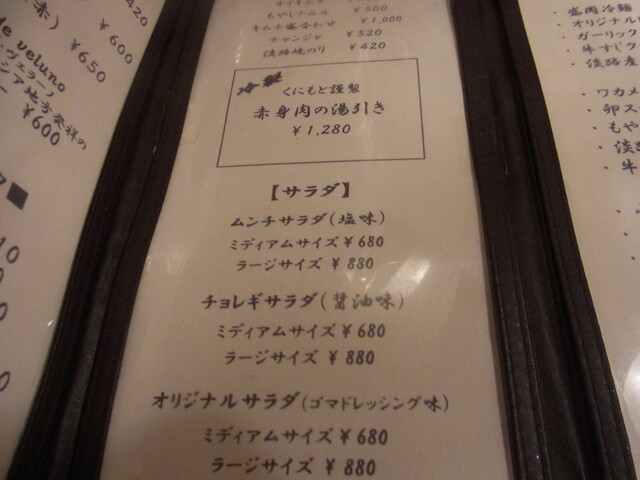 赤）
420
¥600
de veluno
¥650
ジア地方発祥の
¥600
オイキムチ
もやしナムル ¥500
キムチ盛合わせ ¥1,000
チャンジャ ¥520
淡路焼のり ¥420
くにもと謹製
赤身肉の湯引き
¥1,280
【サラダ】
ムンチサラダ(塩味)
ミディアムサイズ ¥680
ラージサイズ ¥880
チョレギサラダ(醤油味)
ミディアムサイズ ¥680
ラージサイズ ¥880
オリジナルサラダ(ゴマドレッシング味)
ミディアムサイズ ¥680
ラージサイズ ¥880
・盛岡冷麺
・オリジナル
・ガーリック
・牛すじク
・淡路産
・ワカメ
・卵ス
・もや
・淡
・牛